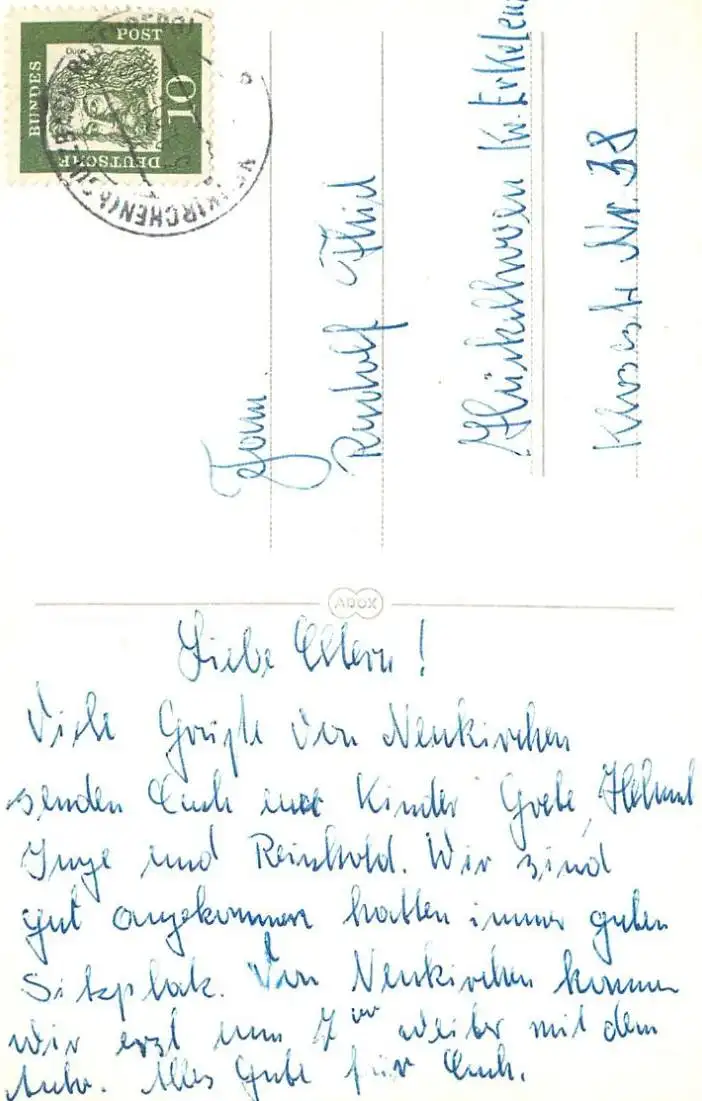 DEUTSCHE
BUNDES
POST
10
Dürer
NEUKIRCHEN (b. SULZBACH-ROSENBERG)
Fam.
Rudolf
Hückelhoven Kr. Erkelenz
Nr. 38
ADOX
Liebe Eltern!
Viele Grüße von Neukirchen
senden Euch eure Kinder Grete, Helmut
Inge und Reinhold. Wir sind
gut angekommen hatten immer guten
Sitzplatz. Von Neukirchen kommen
wir erst um 7 Uhr weiter mit dem
Auto. Alles Gute für Euch.